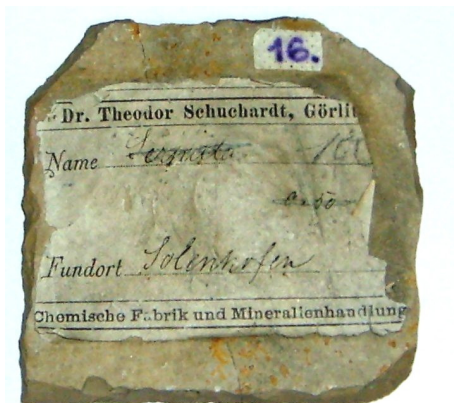 16.
Dr. Theodor Schuchardt, Görlit
Name
Fundort Solenhofen
Chemische Fabrik und Mineralienhandlung